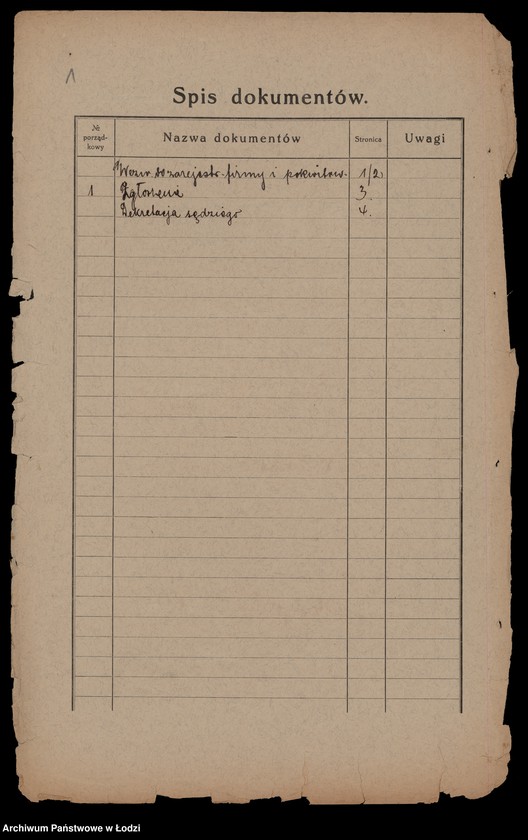 1
Spis dokumentów.
№ porząd-kowy Nazwa dokumentów Stronica Uwagi
Wezw. do zarejestr. firmy i pokwitow. 1/2
1 Zgłoszenie 3.
Dekretacja sędziego 4.
Archiwum Państwowe w Łodzi